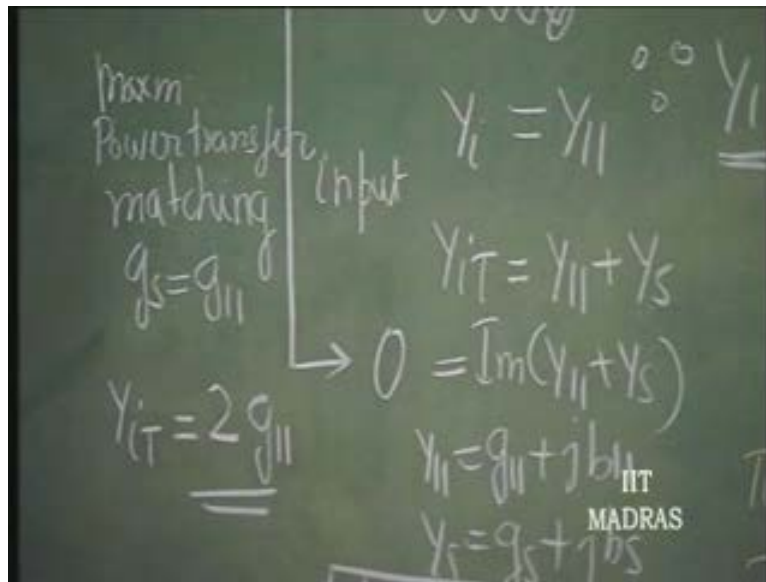 maxm
Power transfer
matching
gs=g11
YiT=2g11
input
Yi = Y11
YiT=Y11+YS
0 = Im(Y11+YS)
Y11=g11+jb11
YS=gS+jbS
IIT
MADRAS